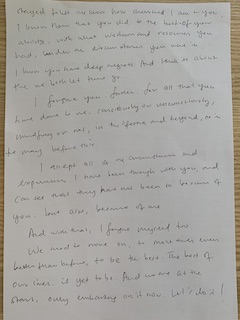 I know that you did to the best of your
ability, with what wisdom and resources you
had, under the circumstances you were in
I know you have deep regrets and
let these go
I forgive you further, for all that you
have done to me, consciously or unconsciously,
mindfully or not, in this lifetime and beyond, or in
the many before this
I accept all the circumstances and
experiences I have been through with you, and
can see that they have not been so because of
you, but also, because of me
And with that, I forgive myself too
We need to move on, to move even
better than before, to be the best. The best of
our lives, is yet to be. And we are at the
start, only embarking on it now. Let's do it!